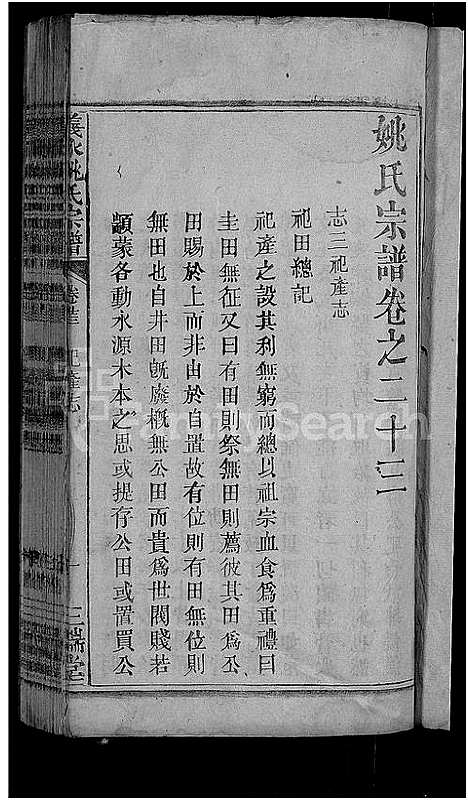 姚氏宗譜卷之二十三
志三祀產志
祀田總記
祀產之設其利無窮而總以祖宗血食為重禮曰
圭田無征又曰有田則祭無田則薦彼其田為公
田賜於上而非由於自置故有位則有田無位則
無田也自井田旣廢概無公田而貴為世閥賤若
顓蒙各動水源木本之思或提存公田或置買公
義水姚氏宗譜
祀產志
一
三瑞堂
FamilySearch